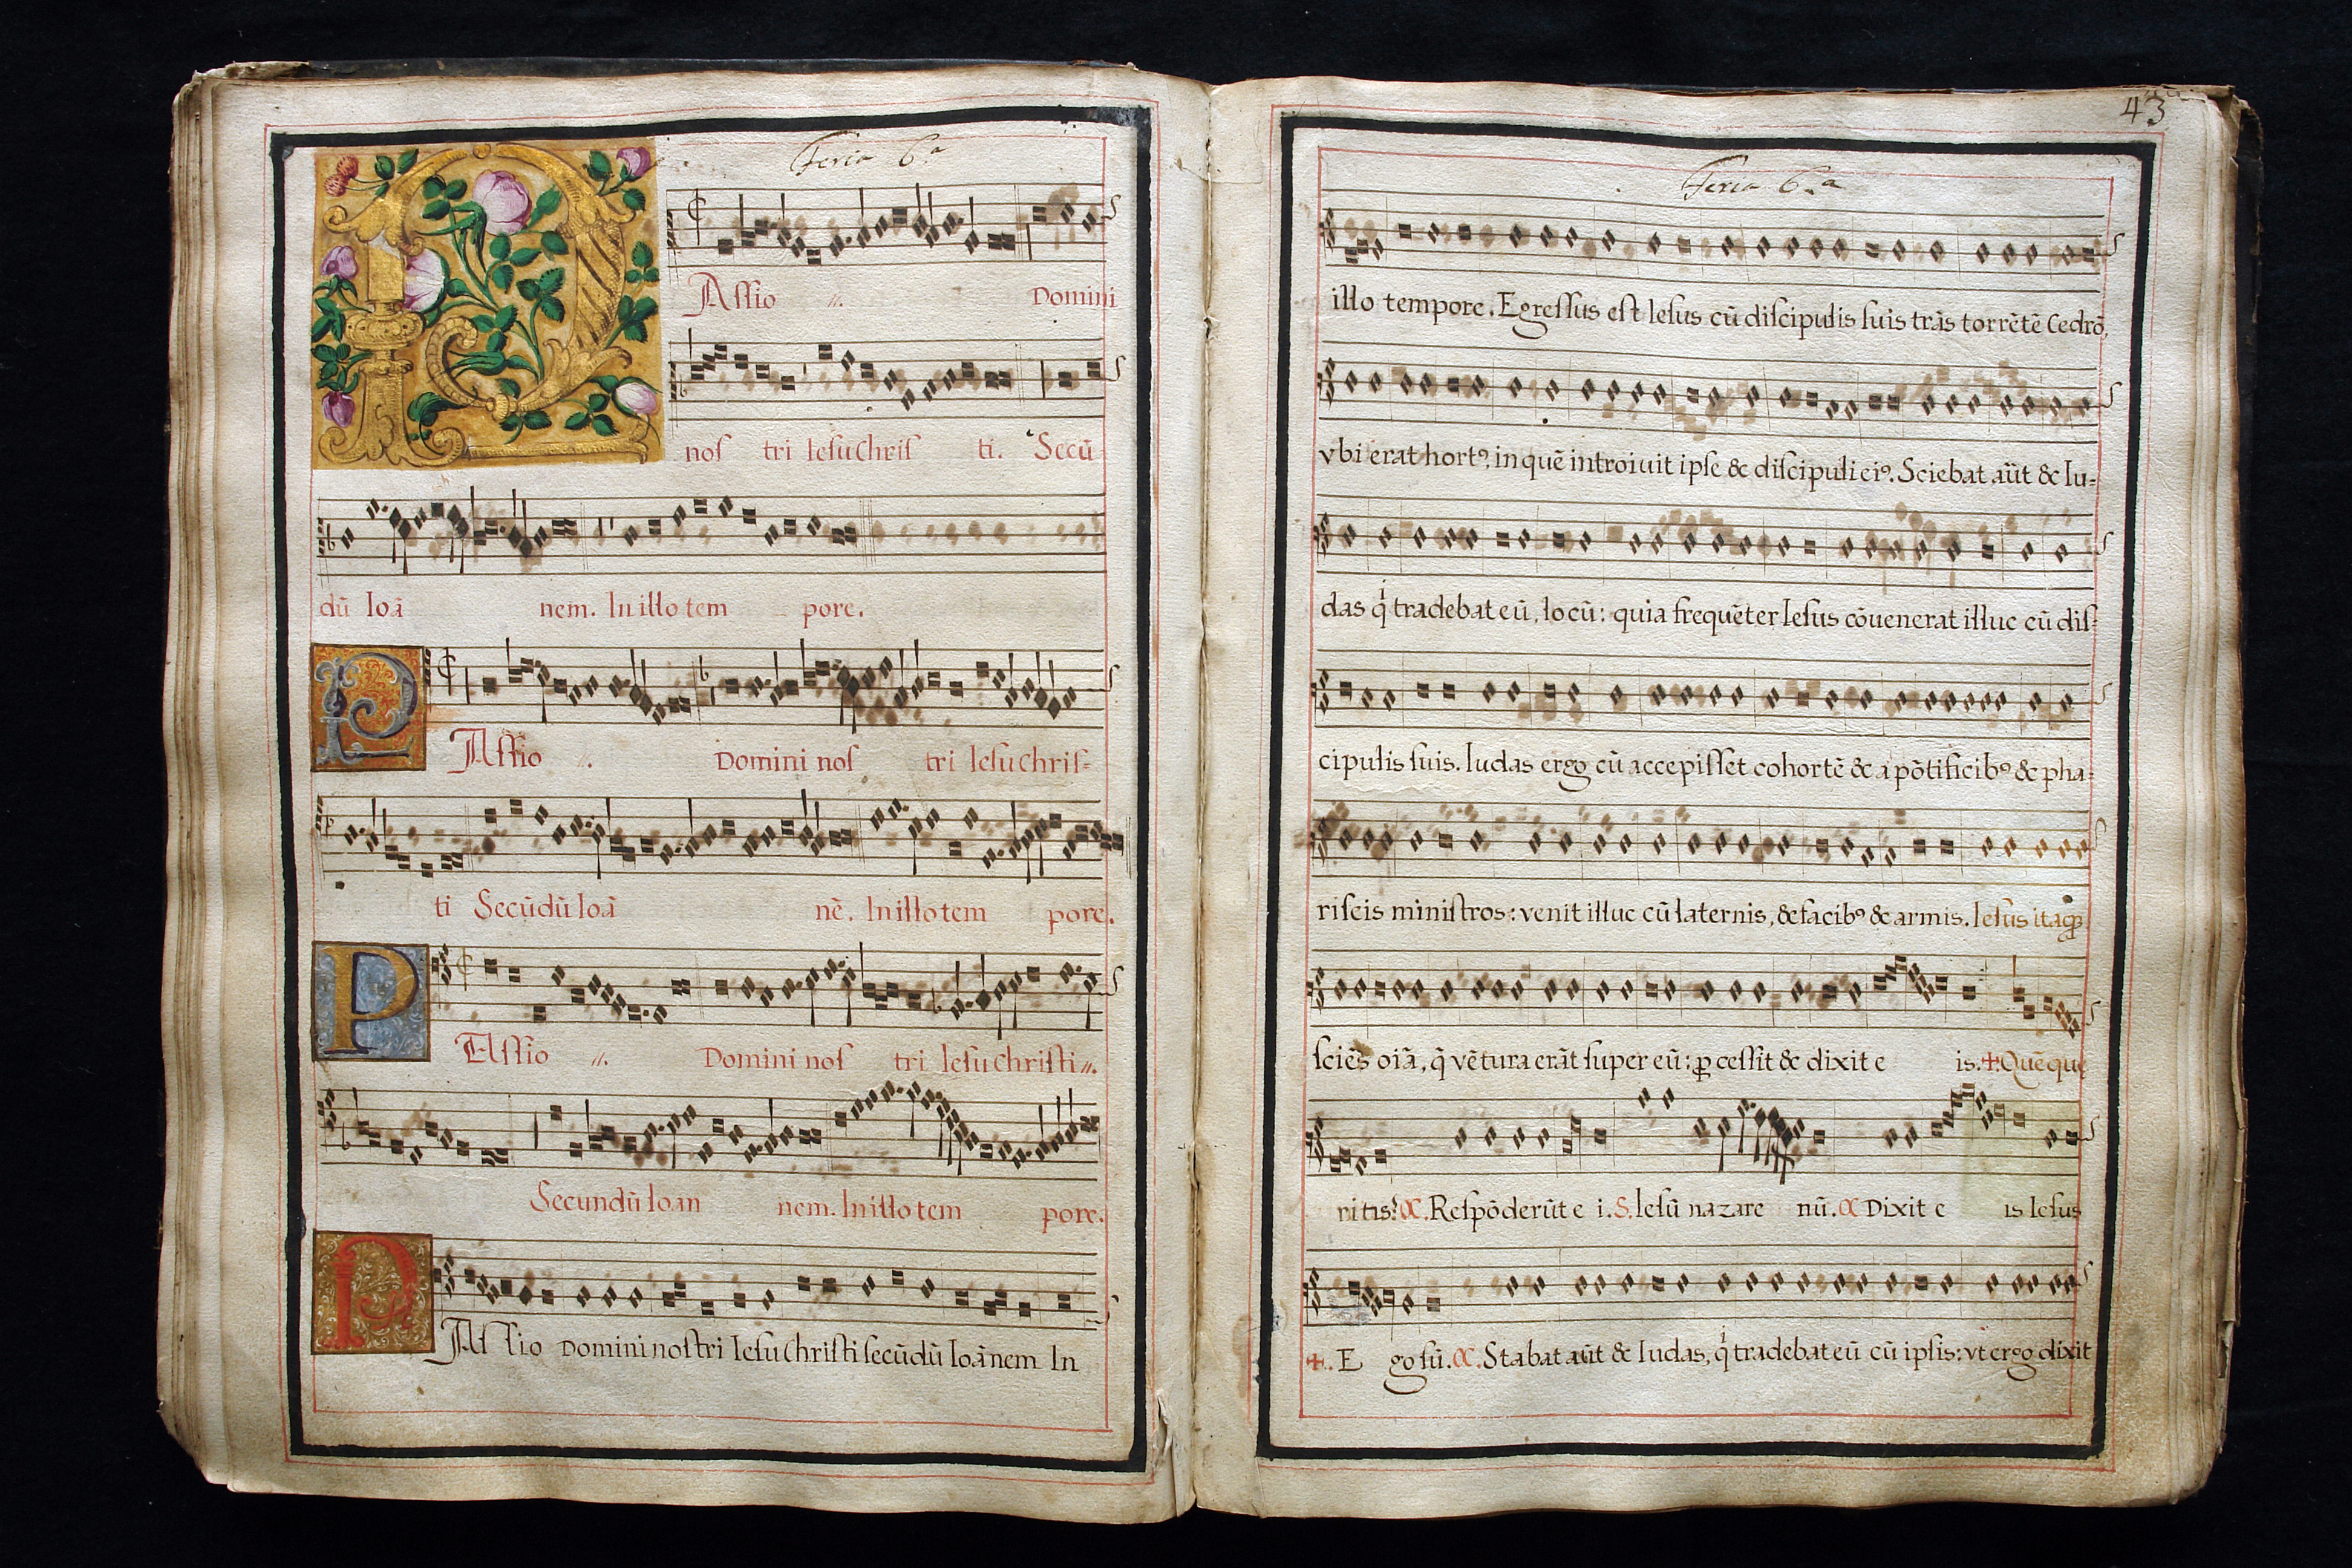 Feria 6.a
PAſſio .//. Domini
noſ tri Ieſu Chriſ ti. Secũ
dũ Ioã nem. In illo tem pore.
PAſſio .//. Domini noſ tri Ieſu Chriſ-
ti Secũdũ Ioã nẽ. In illo tem pore.
PAſſio .//. Domini noſ tri Ieſu Chriſti .//.
Secundũ Ioan nem. In illo tem pore.
PAſſio Domini noſtri Ieſu Chriſti ſecũdũ Ioãnem In
43
Feria 6.a
illo tempore. Egreſſus eſt Ieſus cũ diſcipulis ſuis trãs torrẽtẽ Cedrõ,
vbi erat hortꝰ, in quẽ introiuit ipſe & diſcipuli eiꝰ. Sciebat aũt & Iu-
das qͥ tradebat eũ, locũ: quia frequẽter Ieſus cõuenerat illuc cũ diſ-
cipulis ſuis. Iudas ergo cũ accepiſſet cohortẽ & a põtificibꝰ & pha-
riſeis miniſtros: venit illuc cũ laternis, & facibꝰ & armis. Ieſus itaqȝ
ſciẽs oĩã, q̃ vẽtura erãt ſuper eũ: ꝓceſſit & dixit e is. ✠ Quẽ que
ritis? C. Reſpõderũt e i. S. Ieſũ nazare nũ. C Dixit e is Ieſus
✠. E go ſũ. C. Stabat aũt & Iudas, qͥ tradebat eũ cũ ipſis: vt ergo dixit